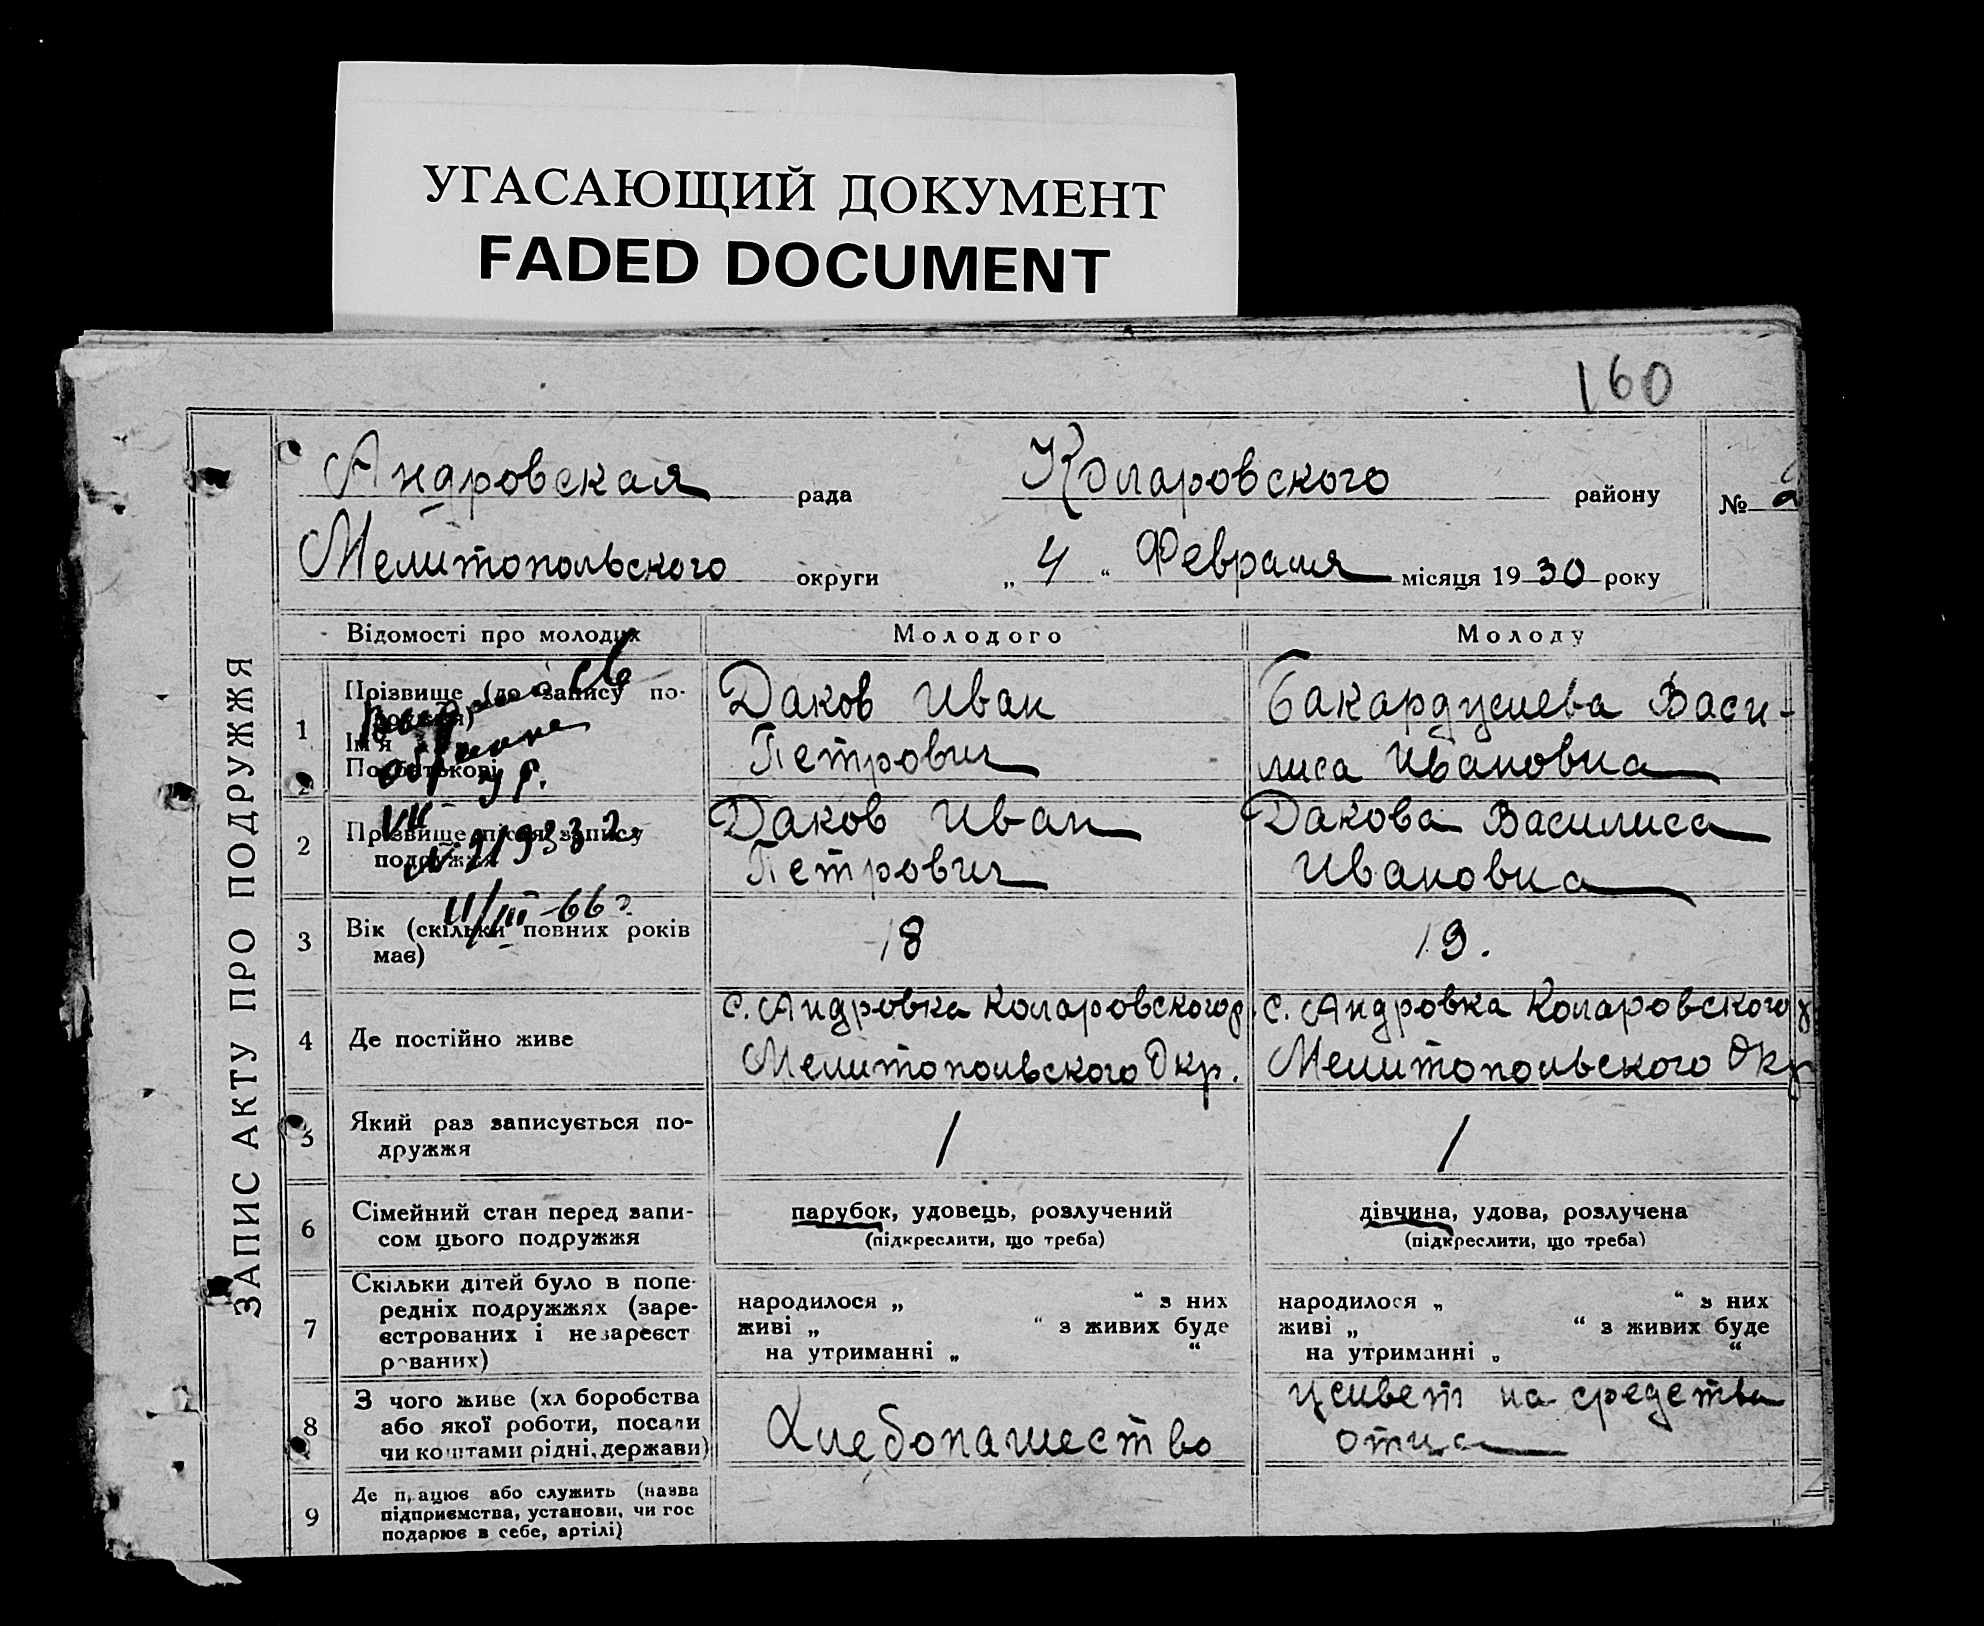 УГАСАЮЩИЙ ДОКУМЕНТ
FADED DOCUMENT
160
Андровская рада Коларовского району № 2
Мелитопольского округи „ 4 “ Февраля місяця 1930 року
ЗАПИС АКТУ ПРО ПОДРУЖЖЯ
Відомості про молодих Молодого Молоду
1 Прізвище (до запису по-
Ім'я
Даков Иван
Петрович
Бакарджиева Васи-
лиса Ивановна
2 Прізвище після запису
подружжя
Даков Иван
Петрович
Дакова Василиса
Ивановна
VII
№ 21933
11/III-66 г
3 Вік (скільки повних років
має)
18
19.
4 Де постійно живе
с. Андровка Коларовского р.
Мелитопольского Окр.
с. Андровка Коларовского р
Мелитопольского Окр
5 Який раз записується по-
дружжя
1
1
6 Сімейний стан перед запи-
сом цього подружжя
парубок, удовець, розлучений
(підкреслити, що треба)
дівчина, удова, розлучена
(підкреслити, що треба)
7 Скільки дітей було в попе-
редніх подружжях (заре-
єстрованих і незареєст
рованих)
народилося „ “ з них
живі „ “ з живих буде
на утриманні „ “
народилося „ “ з них
живі „ “ з живих буде
на утриманні „ “
8 З чого живе (хліборобства
або якої роботи, посади
чи коштами рідні, держави)
Хлебопашество
живет на средства
отца
9 Де працює або служить (назва
підприємства, установи, чи гос
подарює в себе, артілі)